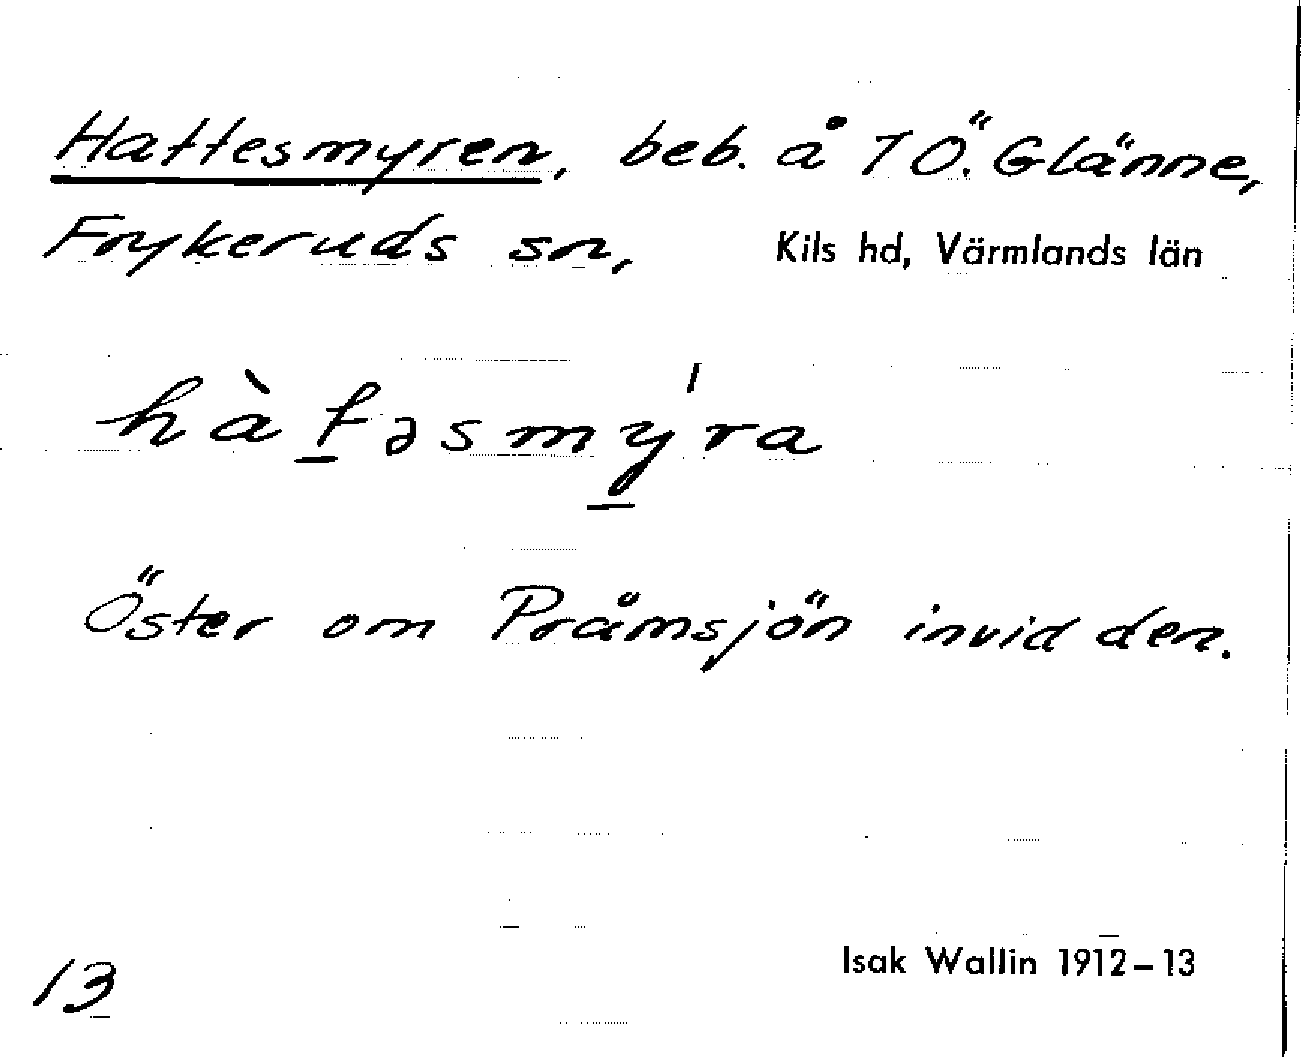 Hattesmyren, beb. å 1 Ö. Glänne,
Frykeruds sn, Kils hd, Värmlands län
hàt̲əsmý̲ra
Öster om Pråmsjön invid den.
Isak Wallin 1912–13
13